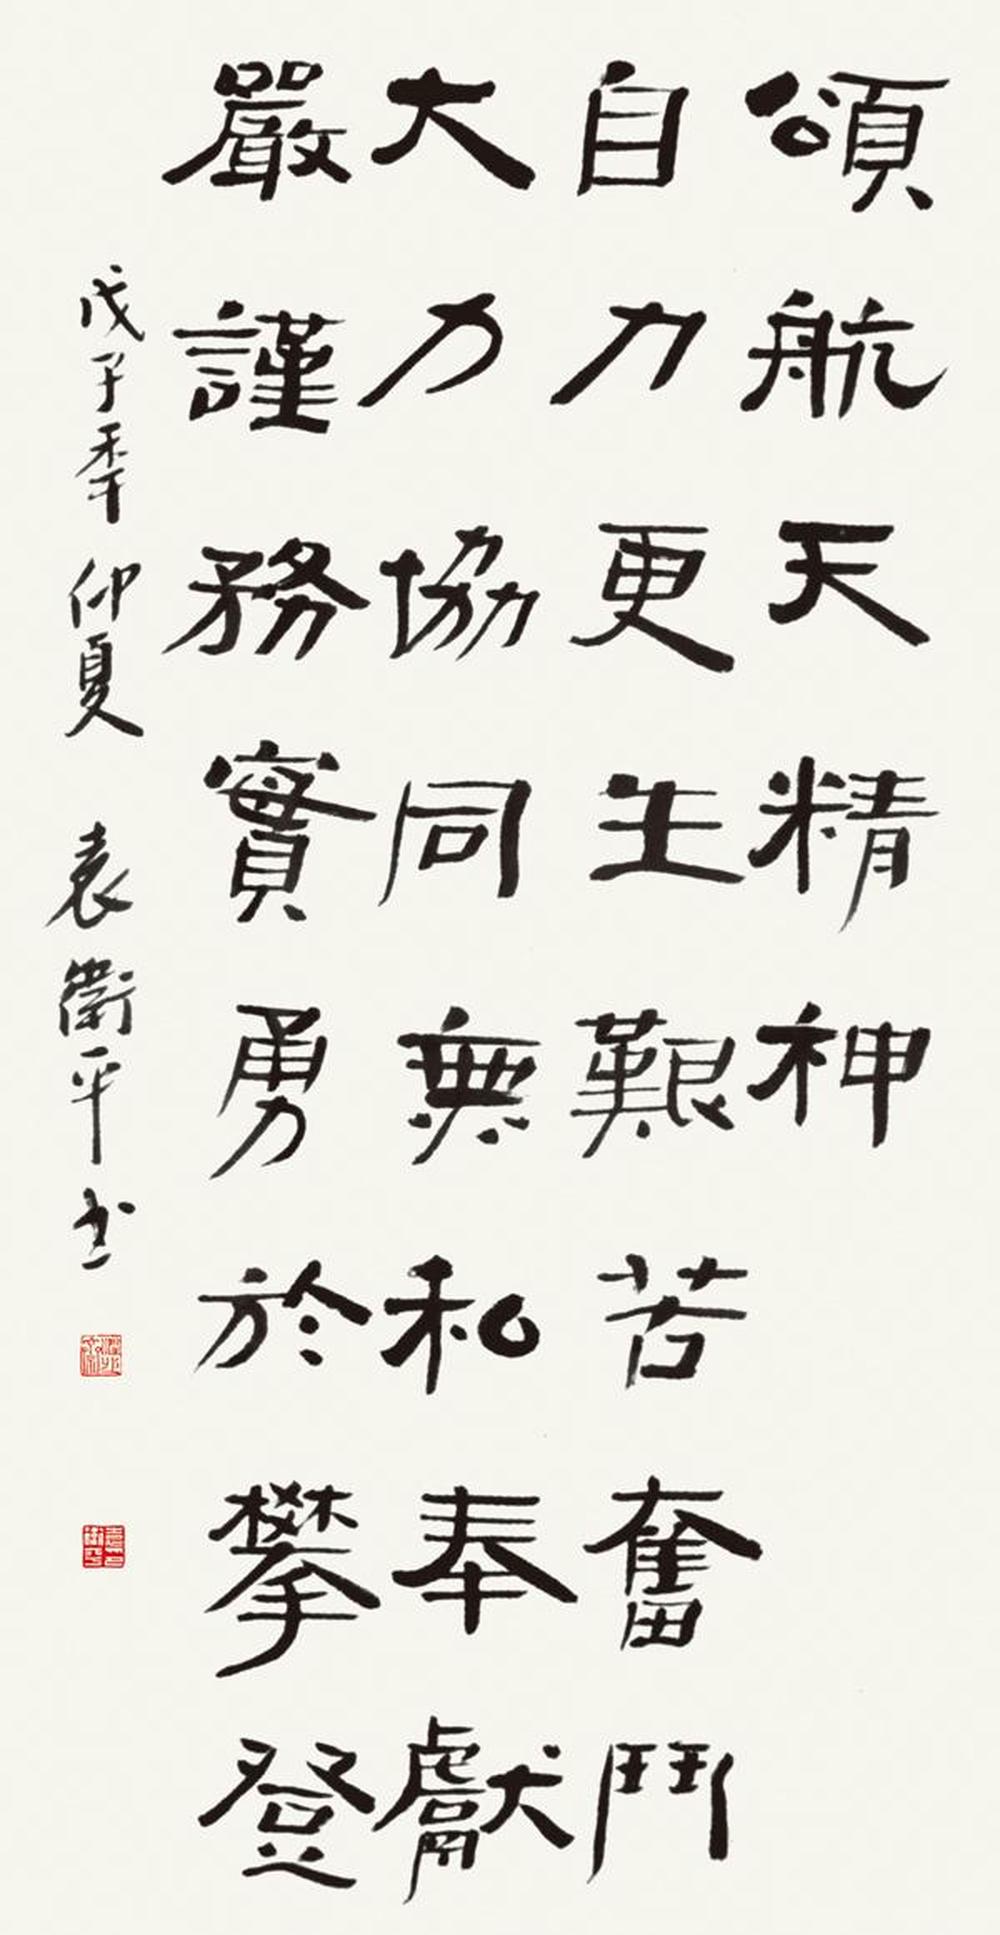 頌航天精神
自力更生艱苦奮鬥
大力協同無私奉獻
嚴謹務實勇於攀登
戊子季仲夏 袁衛平书